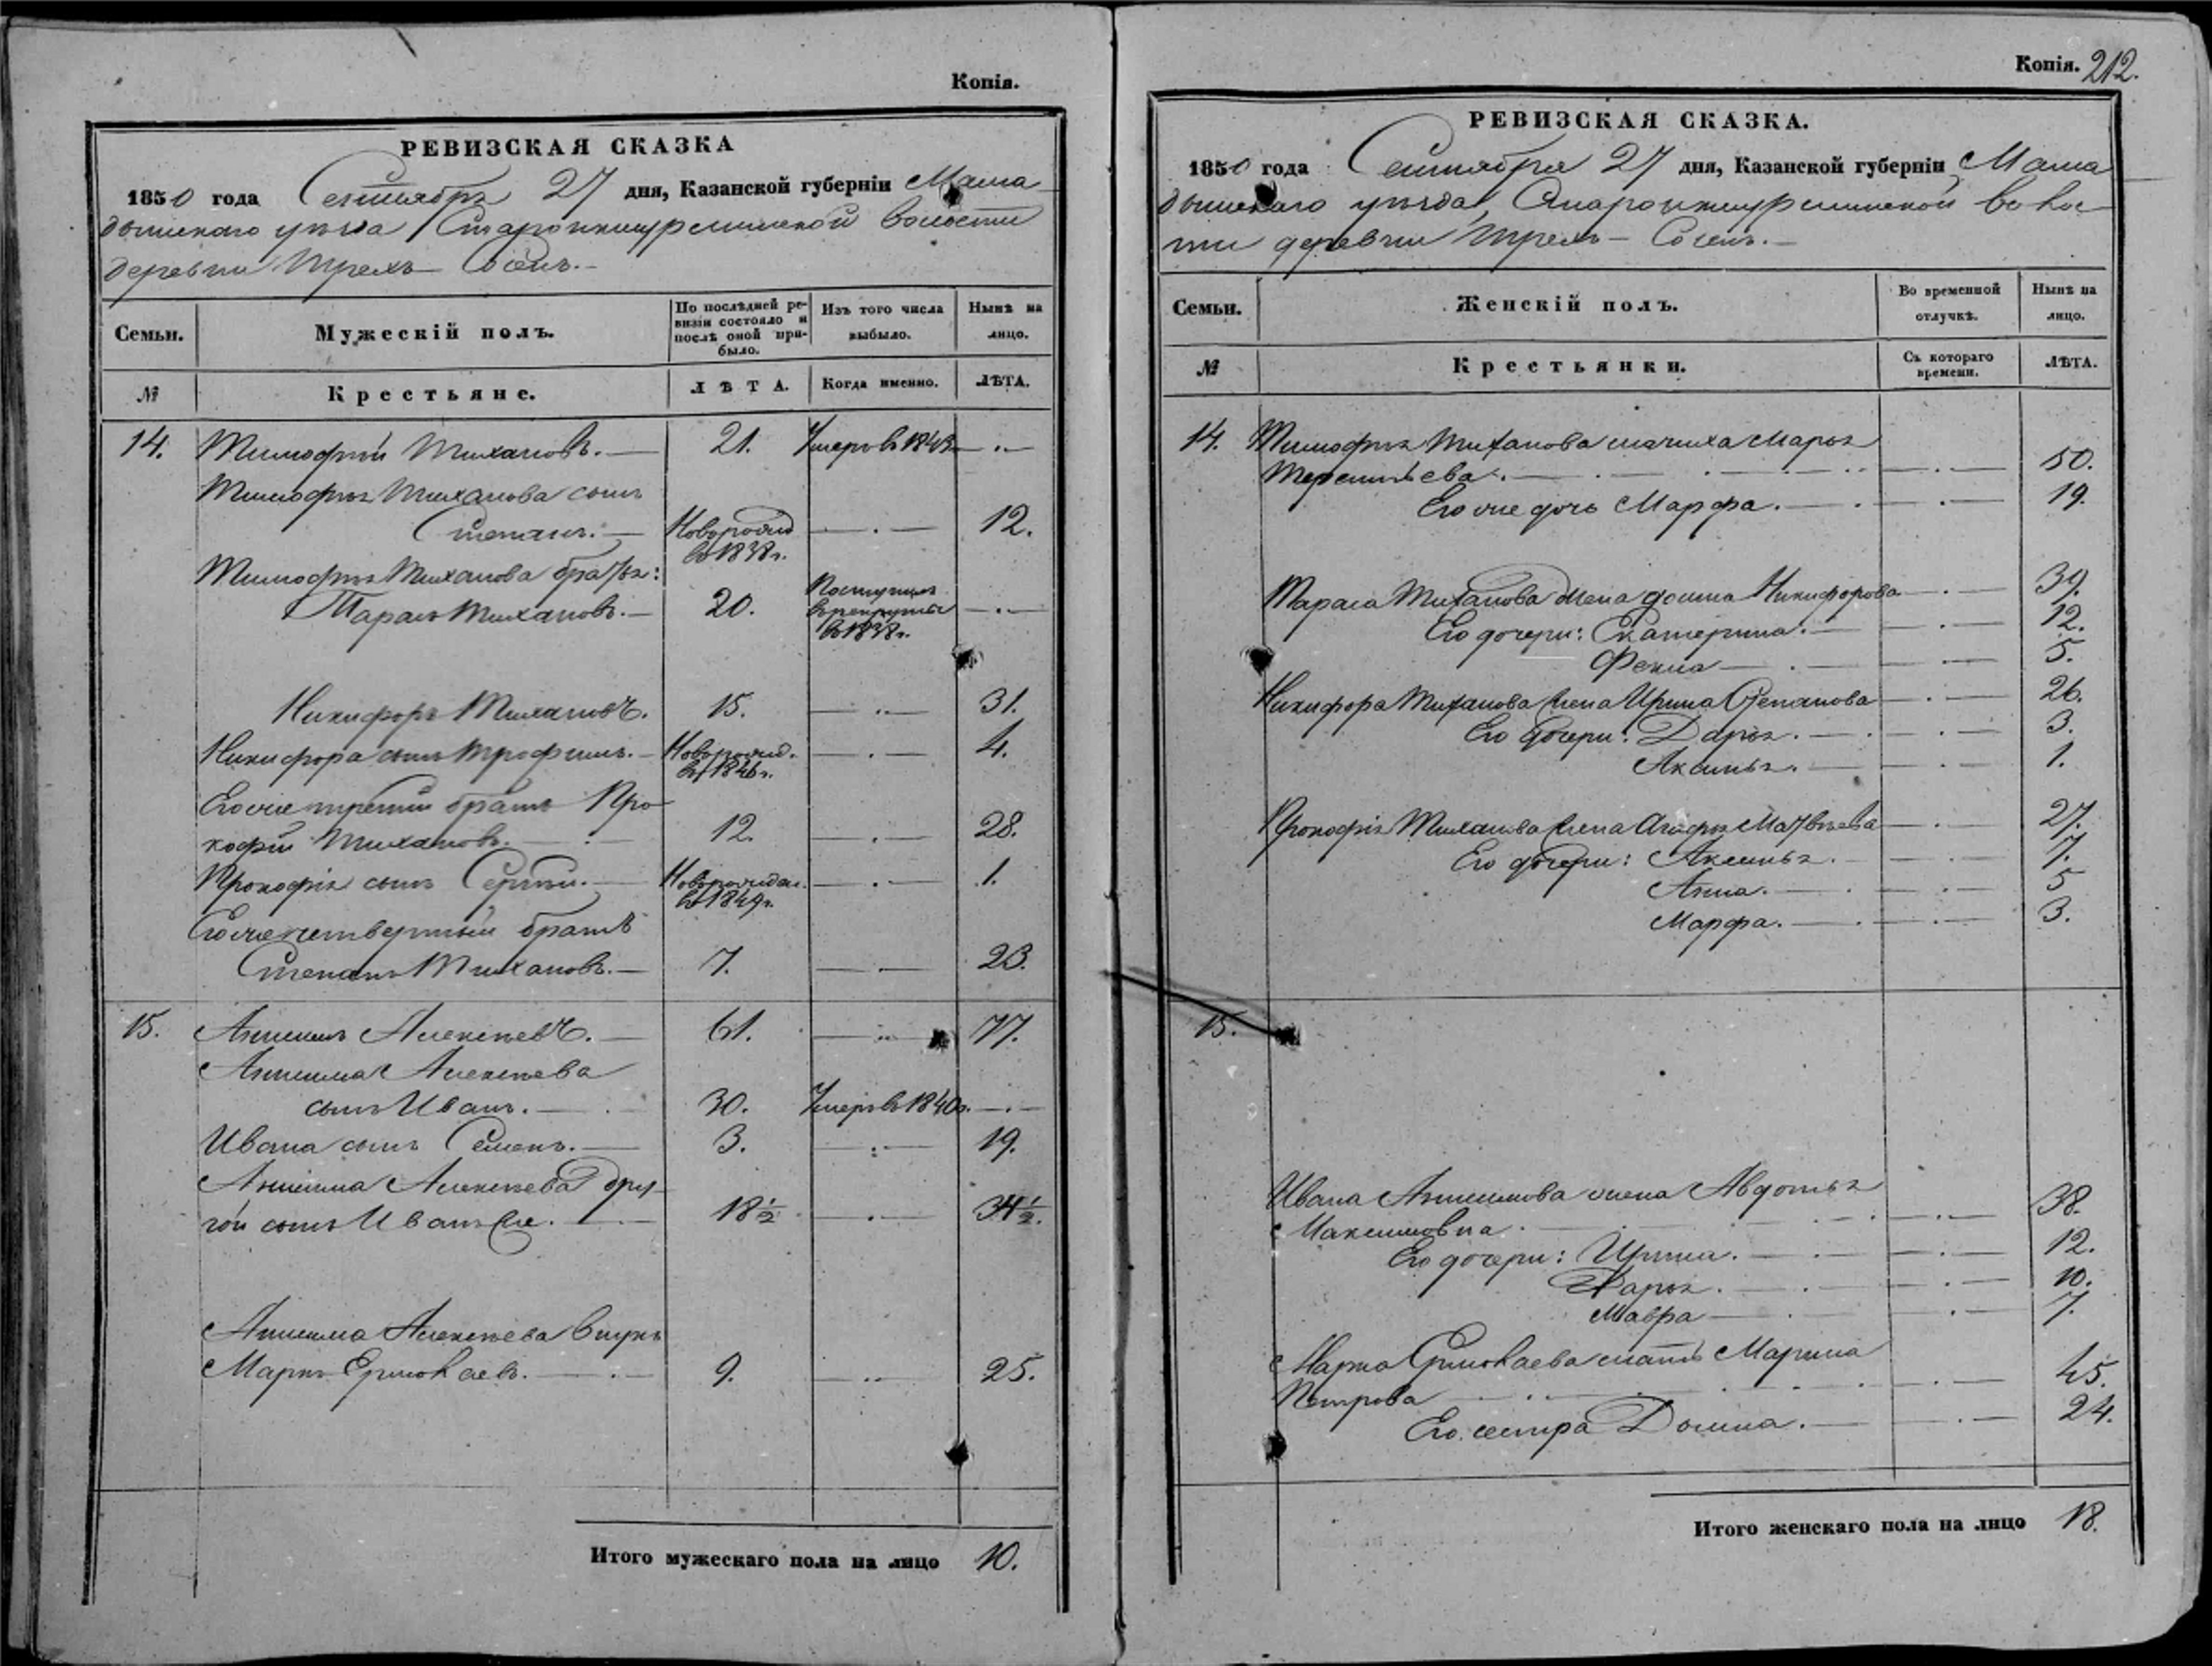 Копія.
РЕВИЗСКАЯ СКАЗКА
1850 года Сентября 27 дня, Казанской губерніи Мама
дышскаго уѣзда Старо
деревни Трехъ Сосенъ.
Семьи. Мужескій полъ. По послѣдней ре-
визіи состояло и
послѣ оной при-
было. Изъ того числа
выбыло. Нынѣ на
лицо.
№ Крестьяне. ЛѢТА. Когда именно. ЛѢТА.
14. Тимофей Тихановъ. 21. Умеръ въ 1843
Тимофѣя Тиханова сынъ
Степанъ. Новорожд 12.
въ 1838 г.
Тимофѣя Тиханова братья:
Тарасъ Тихановъ. 20. Поступилъ
въ рекруты
въ 1838 г.
Никифоръ Тихановъ. 15. 31.
Никифора сынъ Трофимъ. Новорожд. 4.
въ 1846 г.
Его же третій братъ Про
кофій Тихановъ. 12. 28.
Прокофія сынъ Сергѣй. Новорожден. 1.
въ 1849 г.
Его же четвертый братъ
Степанъ Тихановъ. 7. 23.
15. Анисимъ Алексѣевъ. 61. 77.
Анисима Алексѣева
сынъ Иванъ. 30. Умеръ въ 1840 г.
Ивана сынъ Семенъ. 3. 19.
Анисима Алексѣева дру-
гой сынъ Иванъ же. 18½ 34½.
Анисима Алексѣева внукъ
Маркъ Ермолаевъ. 9. 25.
Итого мужескаго пола на лицо 10.
Копія. 212.
РЕВИЗСКАЯ СКАЗКА.
1850 года Сентября 27 дня, Казанской губерніи Мама
дышскаго уѣзда волос
ти деревни Трехъ Сосенъ.
Семьи. Женскій полъ. Во временной
отлучкѣ. Нынѣ на
лицо.
№ Крестьянки. Съ котораго
времени. ЛѢТА.
14. Тимофѣя Тиханова мачиха Марья
Терентьева. 50.
Его же дочь Марфа. 19.
Тараса Тиханова жена Домна Никифорова 39.
Его дочери: Екатерина. 12.
Фекла 5.
Никифора Тиханова жена Ирина Степанова 26.
Его дочери: Дарья. 3.
Аксинья. 1.
Прокофія Тиханова жена Агафья Матвѣева 27.
Его дочери: Аксинья. 7.
Анна. 5
Марфа. 3.
15.
Ивана Анисимова жена Авдотья
Максимовна. 38.
Его дочери: Ирина. 12.
Дарья. 10.
Мавра 7.
Марка Ермолаева мать Марина
Петрова 45.
Его сестра Домна. 24.
Итого женскаго пола на лицо 18.